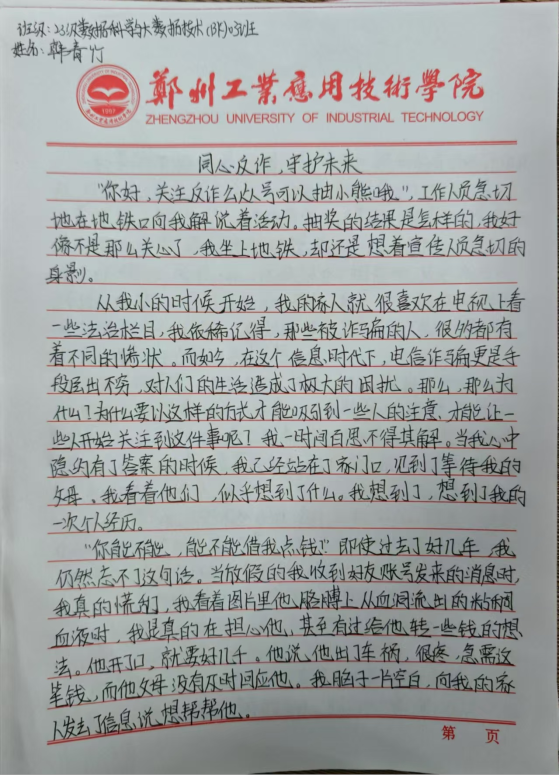 班级：23级数据科学与大数据技术(BK)03班
姓名：韩青竹
鄭州工業應用技術學院
ZHENGZHOU UNIVERSITY OF INDUSTRIAL TECHNOLOGY
1993
同心反诈，守护未来
“你好，关注反诈公众号可以抽小熊哦”，工作人员急切
地在地铁口向我解说着活动。抽奖的结果是怎样的，我好
像不是那么关心了，我坐上地铁，却还是想着宣传人员急切的
身影。
从我小的时候开始，我的家人就很喜欢在电视上看
一些法治栏目，我依稀记得，那些被诈骗的人，很多都有
着不同的惨状。而如今，在这个信息时代下，电信诈骗更是手
段层出不穷，对人们的生活造成了极大的困扰。那么，那么为
什么？为什么要以这样的方式才能吸引到一些人的注意，才能让一
些人开始关注到这件事呢？我一时间百思不得其解。当我心中
隐约有了答案的时候，我已经站在了家门口，见到了等待我的
父母，我看着他们，似乎想到了什么。我想到了，想到了我的
一次个人经历。
“你能不能，能不能借我点钱？”即使过去了好几年，我
仍然忘不了这句话。当放假的我收到好友账号发来的消息时，
我真的慌了，我看着图片里他胳膊上从血洞流出的粘稠
血液时，我是真的在担心他，甚至有过给他转一些钱的想
法。他开了口，就要好几千。他说他出了车祸，很疼，急需这
笔钱，而他父母没有及时回应他。我脑子一片空白，向我的家
人发去了信息说想帮帮他。
第 页